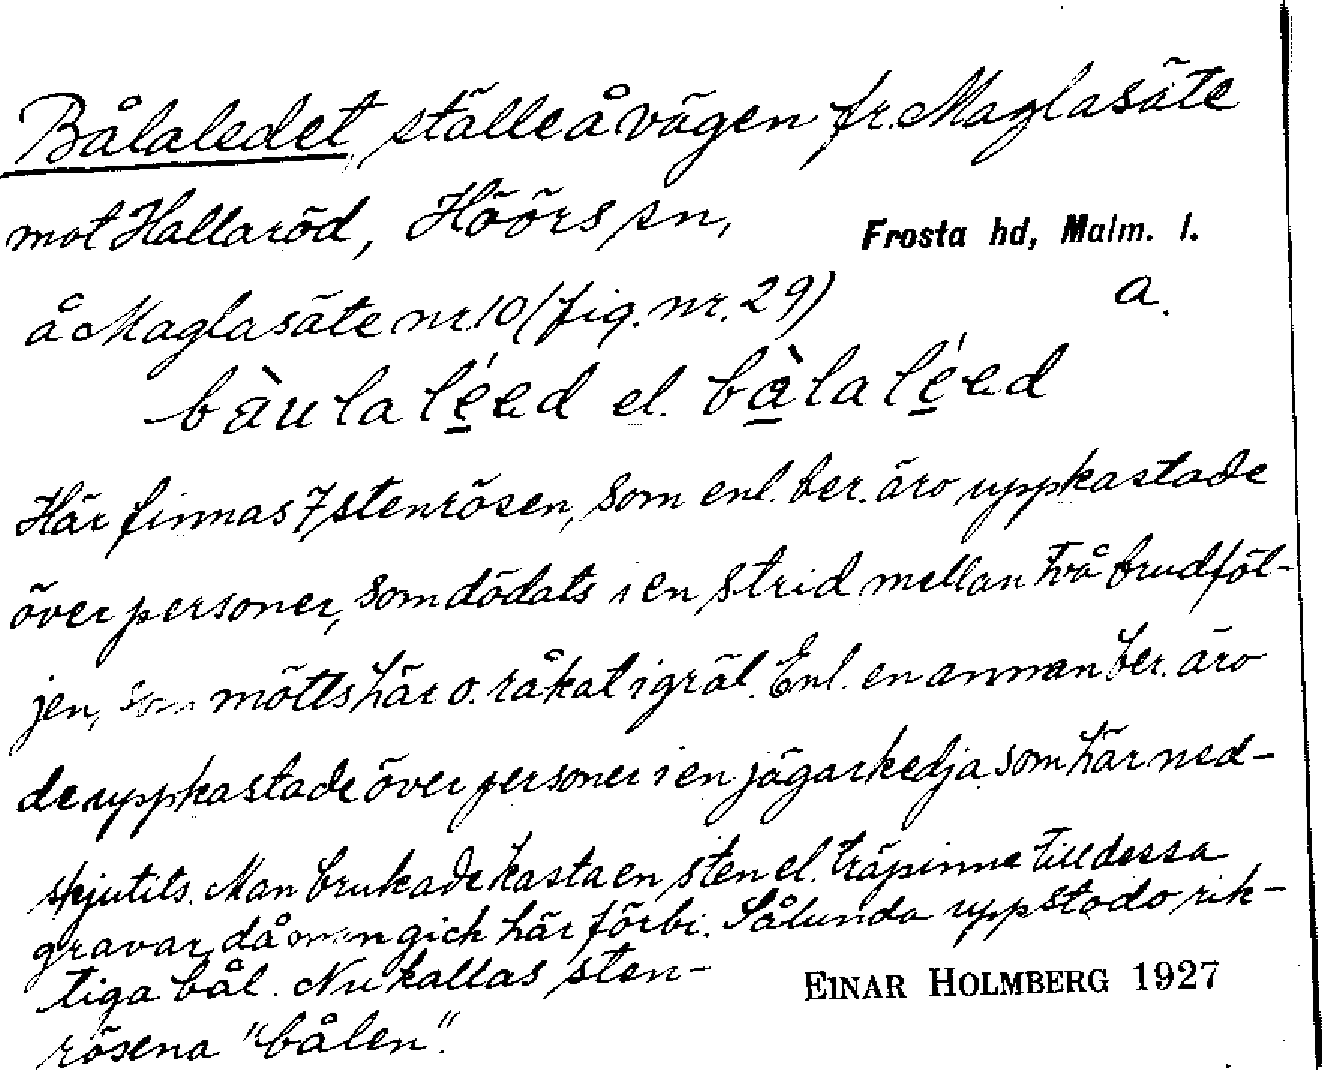 Bålaledet, ställe å vägen fr. Maglasäte
mot Hallaröd, Höörs sn, Frosta hd, Malm. l.
å Maglasäte nr. 10 (fig. nr. 29) a.
bàulaléed el. bàlaléed
Här finnas 7 stenrösen, som enl. ber. äro uppkastade
över personer, som dödats i en strid mellan två brudföl-
jen, som mötts här o. råkat i gräl. Enl. en annan ber. äro
de uppkastade över personer i en jägarkedja som här ned-
skjutits. Man brukade kasta en sten el. träpinne till dessa
gravar, då man gick här förbi. Sålunda uppstodo rik-
tiga bål. Nu kallas sten-
rösena "bålen".
EINAR HOLMBERG 1927